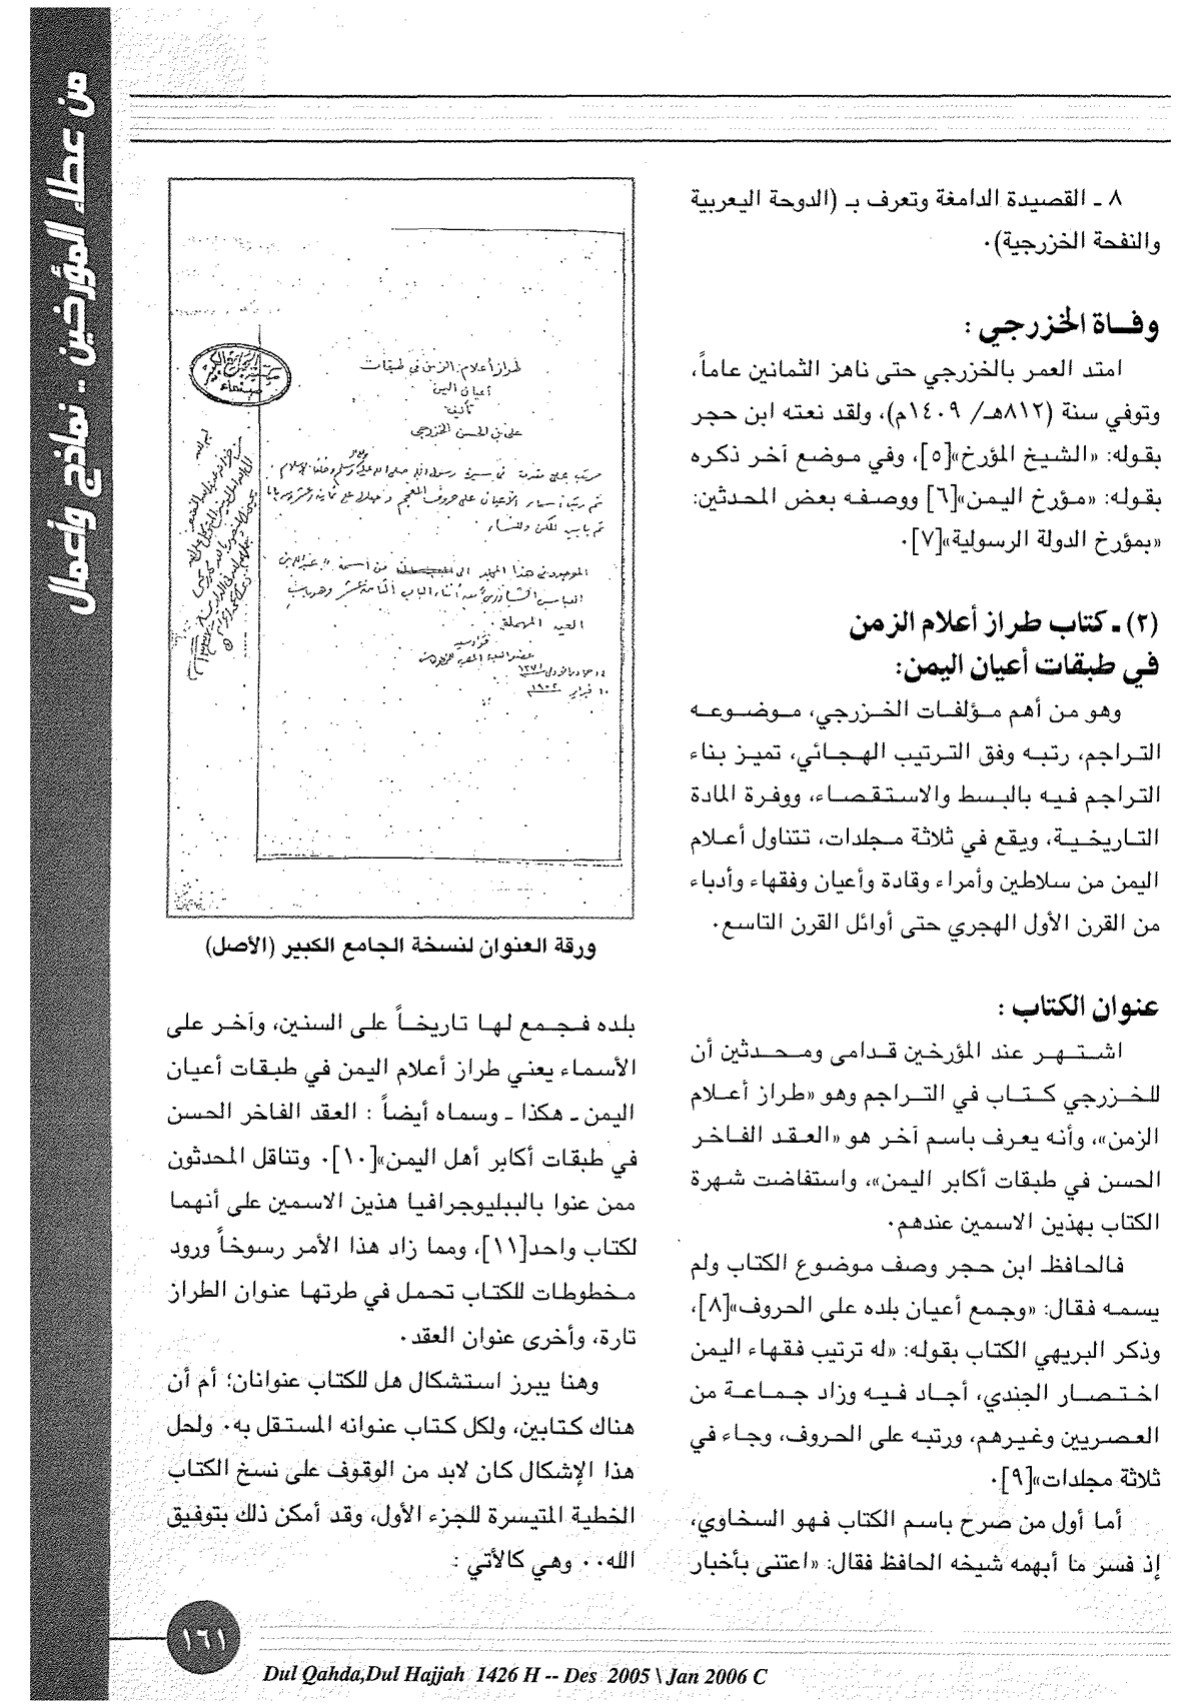 من عطاء المؤرخين .. نماذج وأعمال
٨ ـ القصيدة الدامغة وتعرف بـ (الدوحة اليعربية
والنفحة الخزرجية).
وفاة الخزرجي :
امتد العمر بالخزرجي حتى ناهز الثمانين عاماً،
وتوفي سنة (٨١٢هـ/ ١٤٠٩م)، ولقد نعته ابن حجر
بقوله: «الشيخ المؤرخ»[٥]، وفي موضع آخر ذكره
بقوله: «مؤرخ اليمن»[٦] ووصفه بعض المحدثين:
«بمؤرخ الدولة الرسولية»[٧].
(٢) ـ كتاب طراز أعلام الزمن
في طبقات أعيان اليمن:
وهو من أهم مؤلفات الخزرجي، موضوعه
التراجم، رتبه وفق الترتيب الهجائي، تميز بناء
التراجم فيه بالبسط والاستقصاء، ووفرة المادة
التاريخية، ويقع في ثلاثة مجلدات، تتناول أعلام
اليمن من سلاطين وأمراء وقادة وأعيان وفقهاء وأدباء
من القرن الأول الهجري حتى أوائل القرن التاسع.
عنوان الكتاب :
اشتهر عند المؤرخين قدامى ومحدثين أن
للخزرجي كتاب في التراجم وهو «طراز أعلام
الزمن»، وأنه يعرف باسم آخر هو «العقد الفاخر
الحسن في طبقات أكابر اليمن»، واستفاضت شهرة
الكتاب بهذين الاسمين عندهم.
فالحافظ ابن حجر وصف موضوع الكتاب ولم
يسمه فقال: «وجمع أعيان بلده على الحروف»[٨]،
وذكر البريهي الكتاب بقوله: «له ترتيب فقهاء اليمن
اختصار الجندي، أجاد فيه وزاد جماعة من
العصريين وغيرهم، ورتبه على الحروف، وجاء في
ثلاثة مجلدات»[٩].
أما أول من صرح باسم الكتاب فهو السخاوي،
إذ فسر ما أبهمه شيخه الحافظ فقال: «اعتنى بأخبار
طراز أعلام الزمن في طبقات
أعيان اليمن
تأليف
علي بن الحسن الخزرجي
ورقة العنوان لنسخة الجامع الكبير (الأصل)
بلده فجمع لها تاريخاً على السنين، وآخر على
الأسماء يعني طراز أعلام اليمن في طبقات أعيان
اليمن ـ هكذا ـ وسماه أيضاً : العقد الفاخر الحسن
في طبقات أكابر أهل اليمن»[١٠]. وتناقل المحدثون
ممن عنوا بالببليوجرافيا هذين الاسمين على أنهما
لكتاب واحد[١١]، ومما زاد هذا الأمر رسوخاً ورود
مخطوطات للكتاب تحمل في طرتها عنوان الطراز
تارة، وأخرى عنوان العقد.
وهنا يبرز استشكال هل للكتاب عنوانان؛ أم أن
هناك كتابين، ولكل كتاب عنوانه المستقل به. ولحل
هذا الإشكال كان لابد من الوقوف على نسخ الكتاب
الخطية المتيسرة للجزء الأول، وقد أمكن ذلك بتوفيق
الله.. وهي كالآتي :
١٦١
Dul Qahda,Dul Hajjah 1426 H -- Des 2005 \ Jan 2006 C